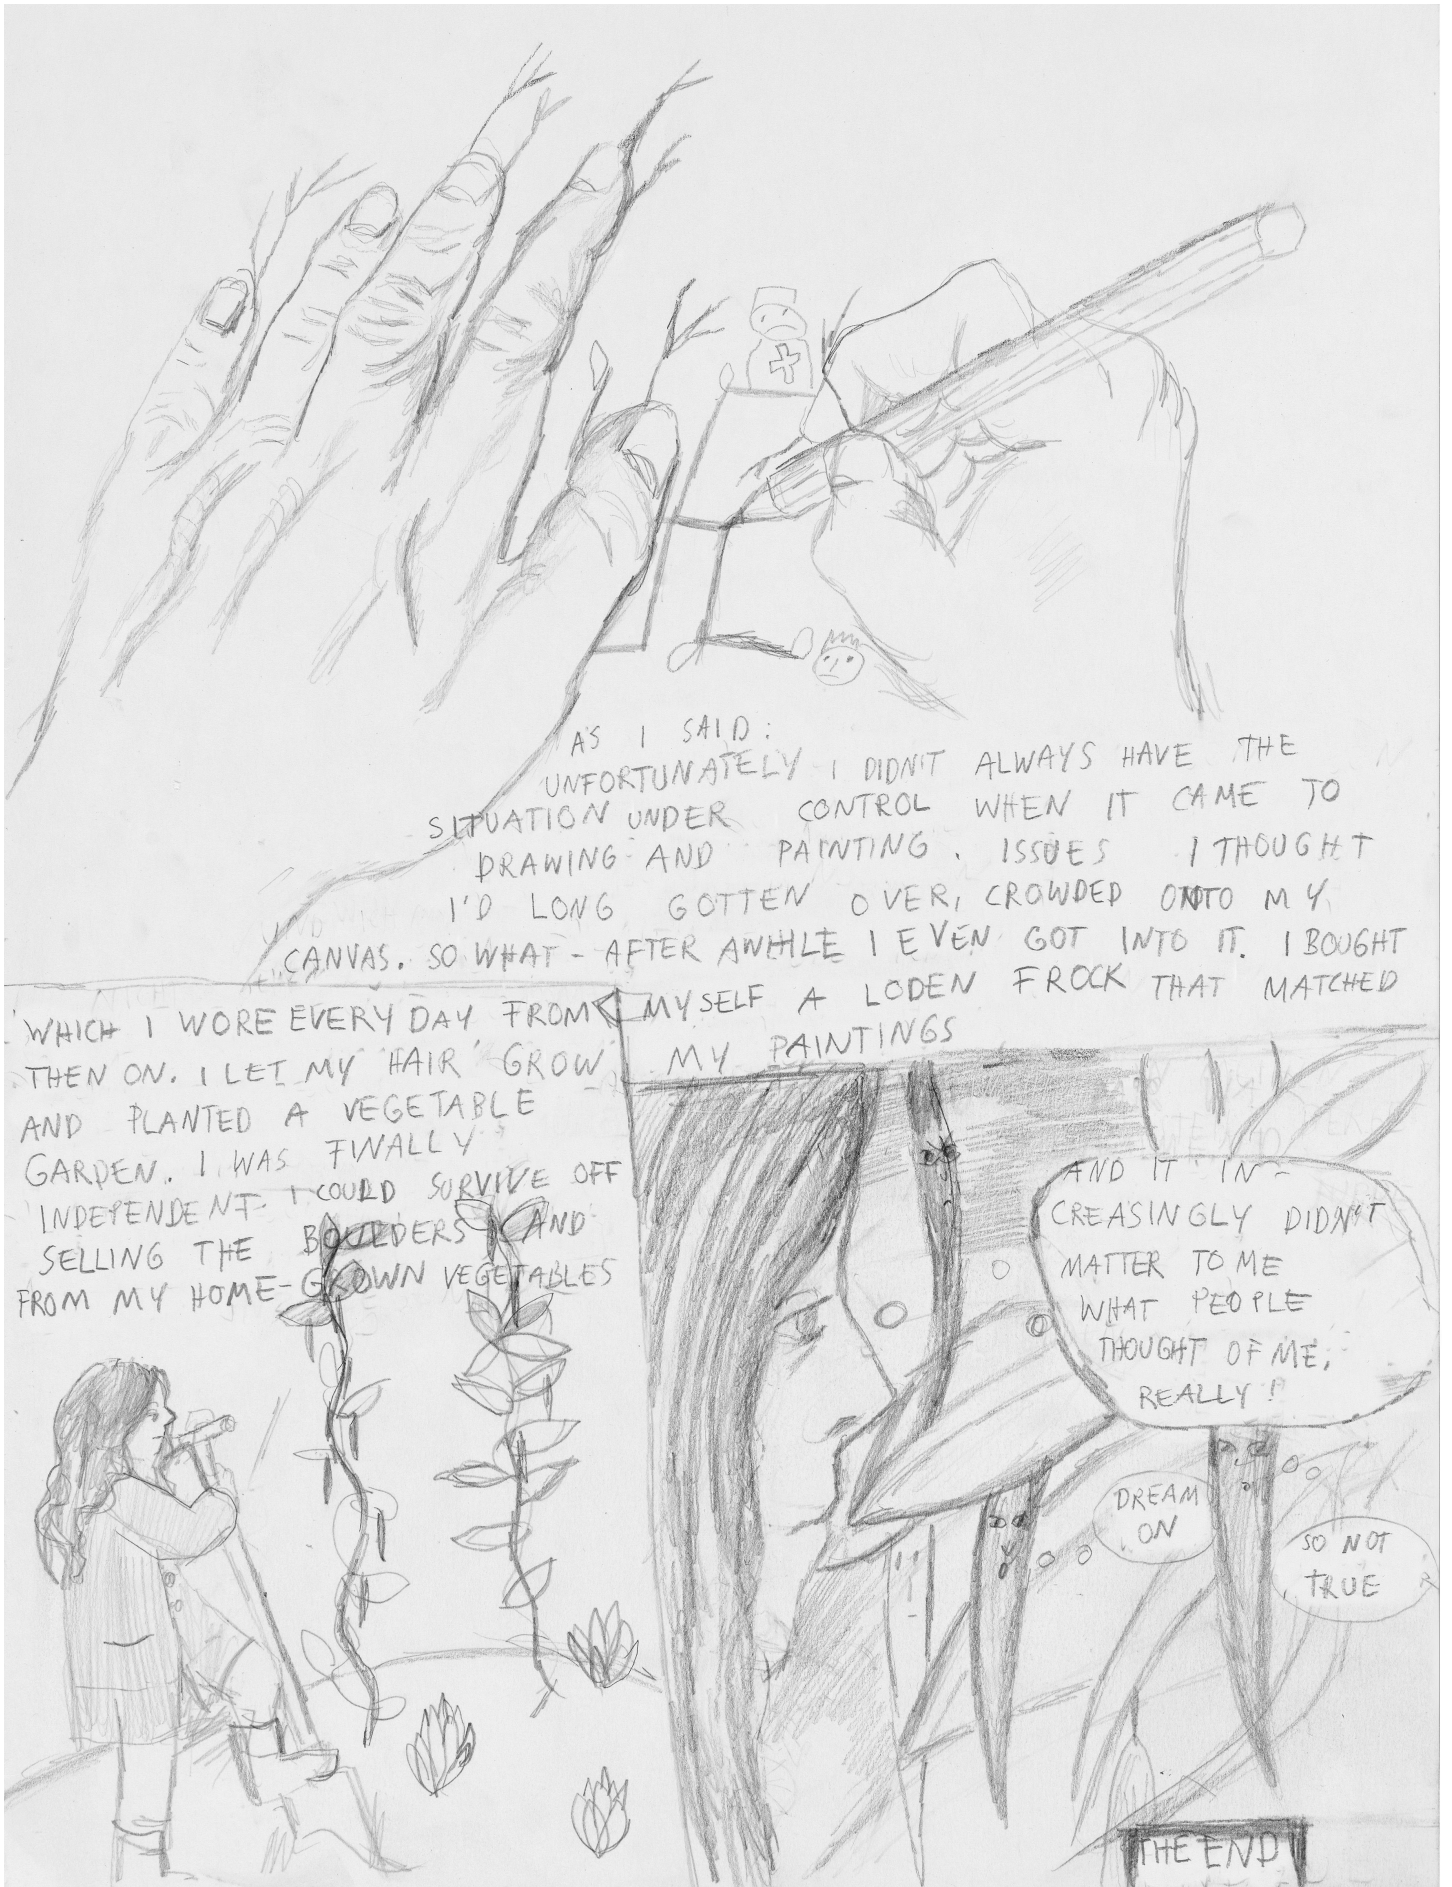 AS I SAID:
UNFORTUNATELY I DIDN'T ALWAYS HAVE THE
SITUATION UNDER CONTROL WHEN IT CAME TO
DRAWING AND PAINTING. ISSUES I THOUGHT
I'D LONG GOTTEN OVER, CROWDED ONTO MY
CANVAS. SO WHAT - AFTER AWHILE I EVEN GOT INTO IT. I BOUGHT
MYSELF A LODEN FROCK THAT MATCHED
MY PAINTINGS
WHICH I WORE EVERY DAY FROM
THEN ON. I LET MY HAIR GROW
AND PLANTED A VEGETABLE
GARDEN. I WAS FINALLY
INDEPENDENT. I COULD SURVIVE OFF
SELLING THE BOULDERS AND
FROM MY HOME-GROWN VEGETABLES
AND IT IN-
CREASINGLY DIDN'T
MATTER TO ME
WHAT PEOPLE
THOUGHT OF ME,
REALLY!
DREAM
ON
SO NOT
TRUE
THE END